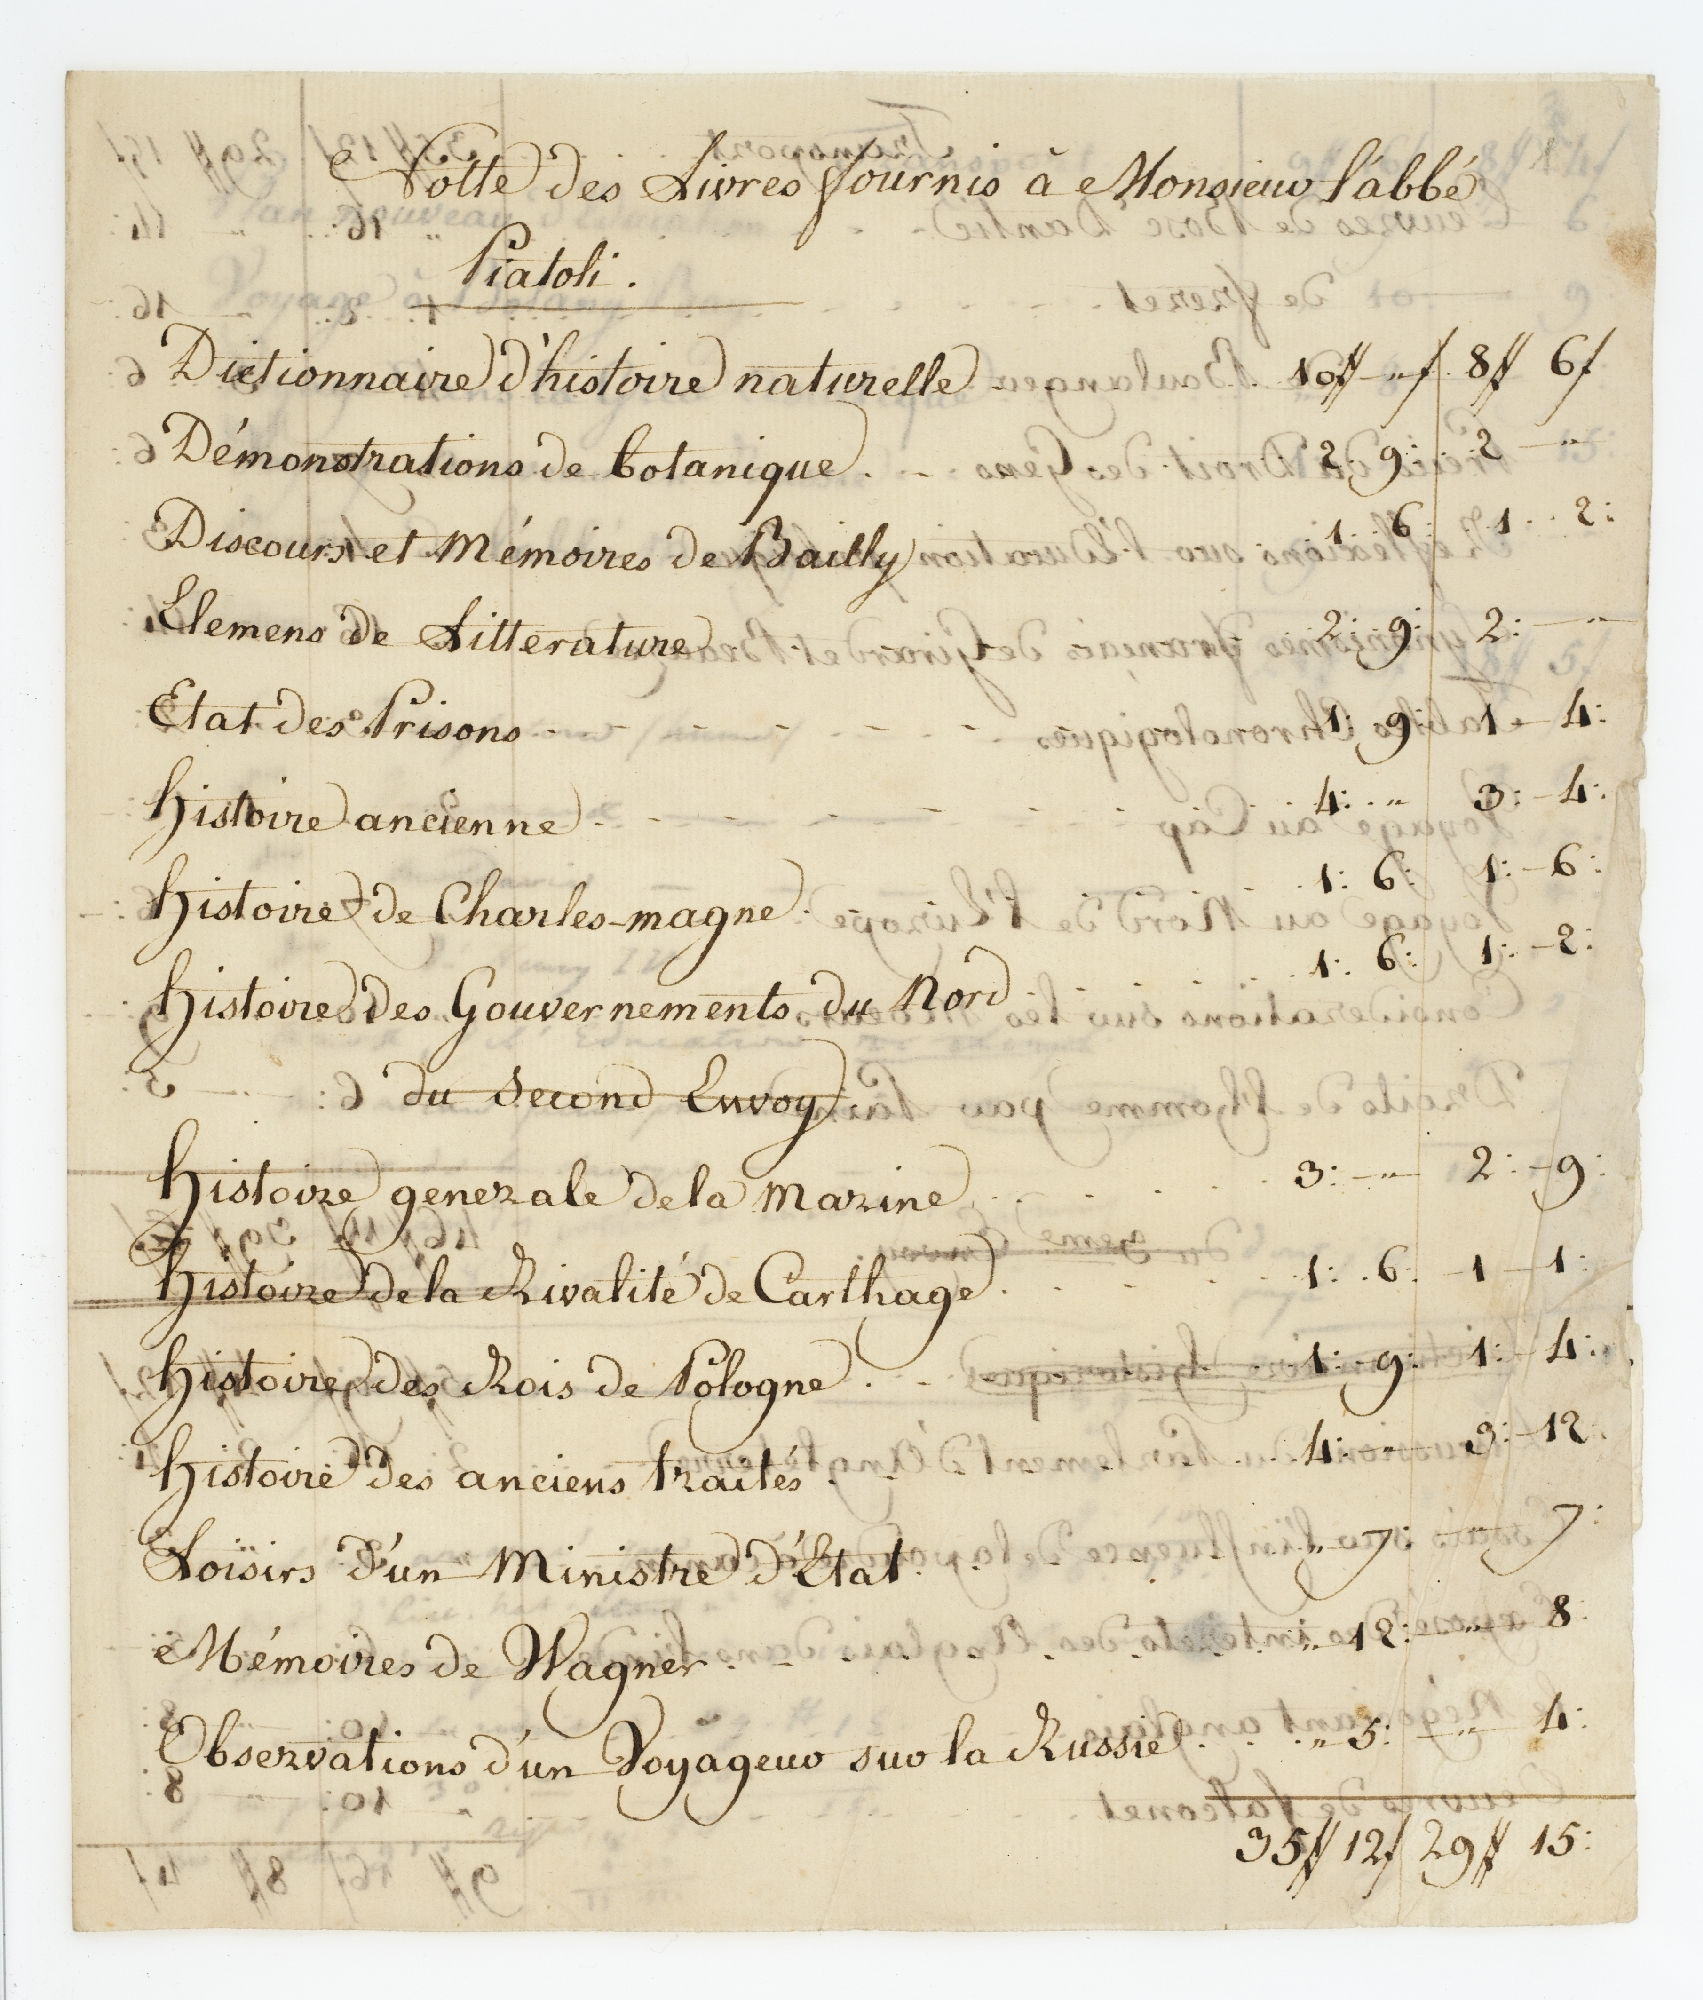 Notte des Livres fournis à Monsieur l'abbé
Piatoli.
Dictionnaire d'histoire naturelle 10# „ ʃ 8# 6ʃ
Démonstrations de botanique . - 2: 9: 2 - „
Discours et Mémoires de Bailly 1: 6: 1: 2:
Elemens de Litterature 2: 9: 2: - „
Etat des Prisons 1: 9 1 - 4:
histoire ancienne . 4: „ 3: - 4:
histoire de Charles-magne . 1: 6: 1: - 6:
histoire des Gouvernements du Nord 1: 6: 1: - 2:
du second Envoy
histoire generale de la Marine 3: - „ 2: - 9:
histoire de la Rivalité de Carthage . 1: 6: 1 - 1:
histoire des Rois de Pologne . 1: - 9: 1: - 4:
histoire des anciens traités . 4: „ 3: - 12
Loisirs d'un Ministre d'Etat „ 7: „ 7:
Mémoires de Wagner „ 12: „ 8:
Observations d'un Voyageur sur la Russie . „ 5: - „ - 4:
35# 12ʃ 29# 15: